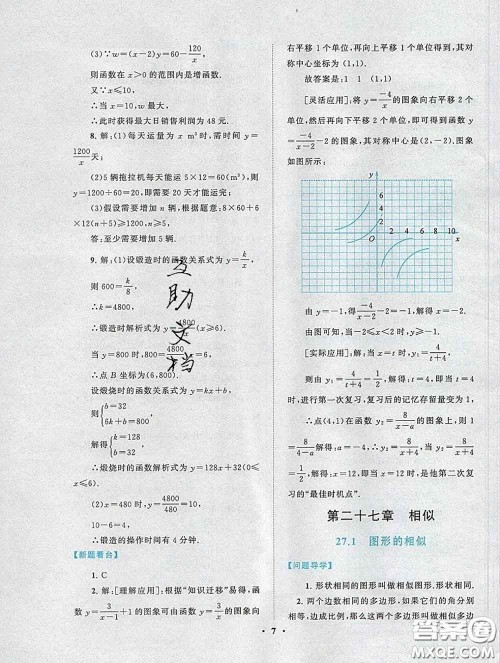 (3)∵W=(x-2)y=60-120/x
则函数在 x>0 的范围内是增函数.
又∵x≤10,
∴当 x=10,w最大
此时获得最大日销售利润为 48 元.
8. 解:(1)每天运量为 x m³时,需时间 y=
1200/x 天;
(2)5 辆拖拉机每天能运 5×12=60(m³),则
y=1200÷60=20,即需要 20 天才能运完;
(3)假设需要增加 n 辆,根据题意:8×60+6
×12(n+5)≥1200,n≥5,
答:至少需要增加 5 辆.
9. 解:(1)设锻造时的函数关系式为 y=k/x,
则 600=k/8,
∴k=4800,
∴锻造时解析式为 y=4800/x(x≥6).
当 y=800 时,800=4800/x,x=6,
∴点 B 坐标为(6,800).
设煅烧时的函数关系式为 y=kx+b,
则{b=32
6k+b=800,
解得{k=128
b=32.
∴煅烧时的函数解析式为 y=128x+32(0≤x
≤6).
(2)x=4800/480=10,
y=10-6=4,
∴锻造的操作时间有 4 分钟.
【新题看台】
1. C
2. 解:[理解应用]:根据“知识迁移”易得,函数
y=1/(x-1)+1 的图象可由函数 y=1/x 的图象向
右平移 1 个单位,再向上平移 1 个单位得到,其对
称中心坐标为(1,1).
故答案是:1 1 (1,1)
[灵活应用]:将 y=-4/x 的图象向右平移 2 个
单位,然后再向下平移 2 个单位,即可得到函数 y=
-4/(x-2)-2 的图象,其对称中心是(2,-2).图象如
图所示:
y
6
4
2
O 2 4 6 8 10 x
由 y=-1,得-4/(x-2)-2=-1,解得 x=-2.
[实际应用]:解:当 x=t 时,y₁=4/(t+4),
则由 y₁=4/(t+4)=1/2,解得:t=4,即当 t=4 时,
进行第一次复习,复习后的记忆存留量变为 1.
∴点(4,1)在函数 y₂=8/(x-a)的图象上,则 1=
8/(4-a),解得:a=-4.∴y₂=8/(x+4),当 y₂=8/(x+4)=
1/2,解得:x=12,即当 x=12 时,是他第二次复
习的“最佳时机点”.
第二十七章 相似
27.1 图形的相似
【问题导学】
1. 形状相同的图形叫做相似图形.
2. 两个边数相同的多边形,如果它们的角分别
相等,边成比例,那么这两个多边形叫做相似多边
· 7 ·
互助文档